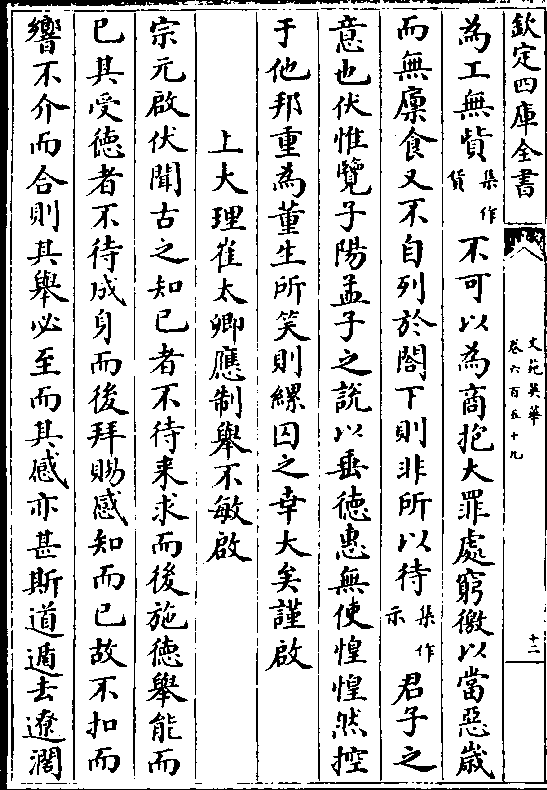 欽定四庫全書
文苑英華
卷六百五十九
十二
為工無貲集作貨不可以為商抱大罪處窮徼以當惡歲
而無廩食又不自列於閤下則非所以待集作示君子之
意也伏惟覽子陽孟子之說以垂德惠無使惶惶然控
于他邦重為董生所笑則縲囚之幸大矣謹啟
上大理崔太卿應制舉不敏啟
宗元啟伏聞古之知已者不待来求而後施徳舉能而
已其受徳者不待成身而後拜賜感知而已故不扣而
響不介而合則其舉必至而其感亦甚斯道遁去遼濶